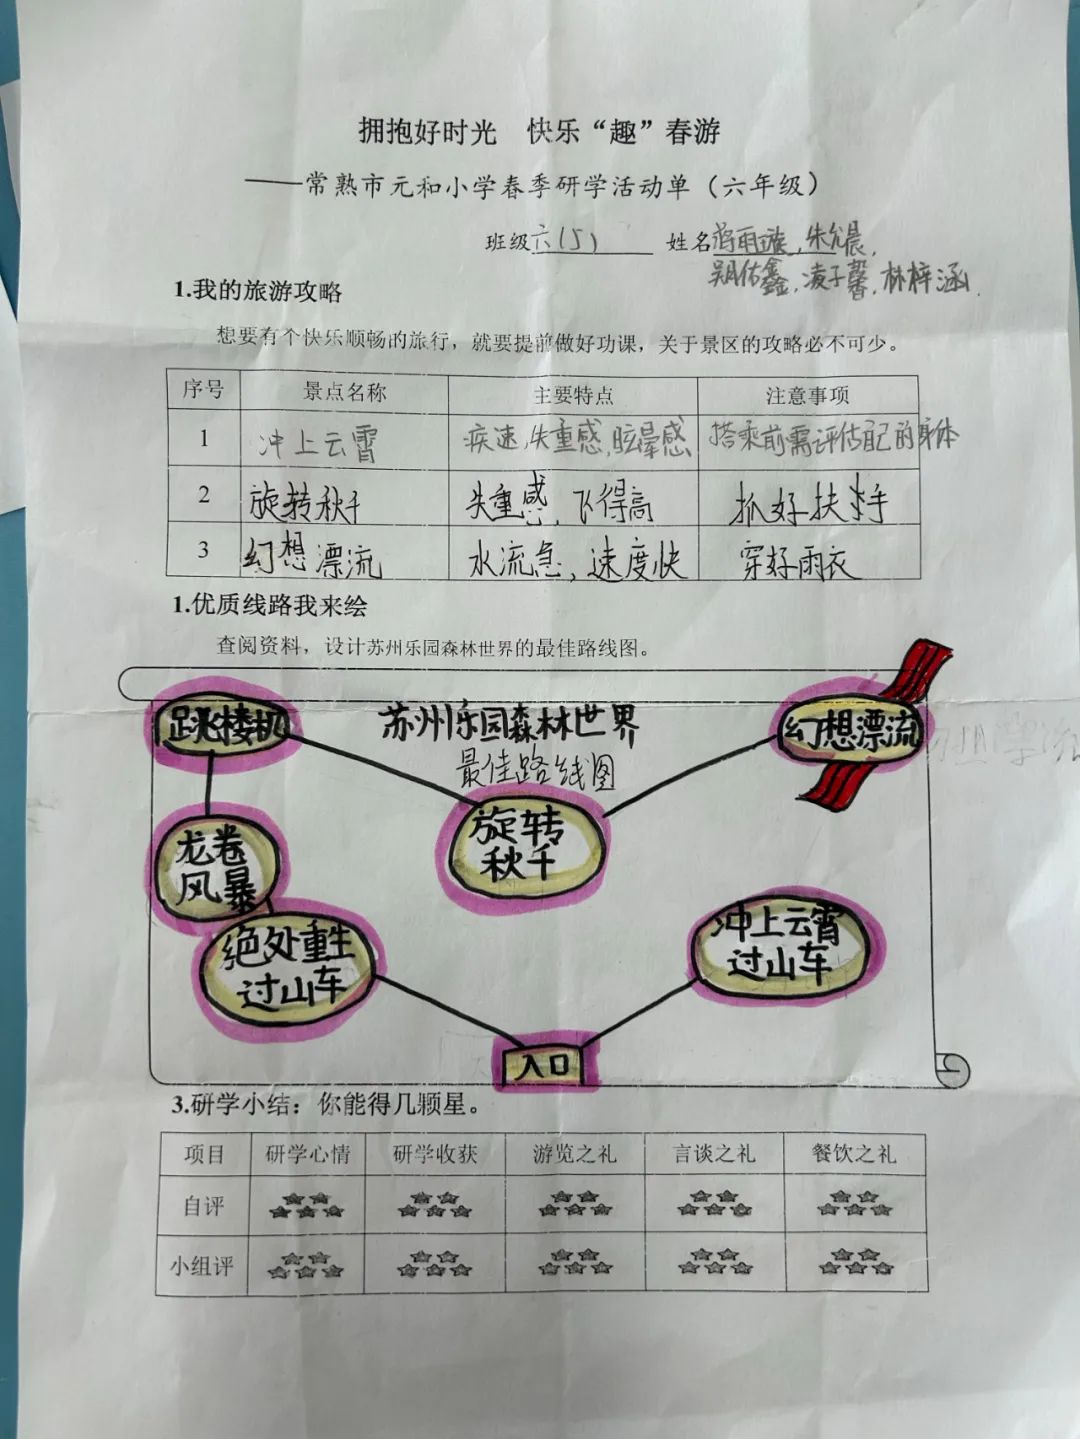 拥抱好时光 快乐“趣”春游
——常熟市元和小学春季研学活动单（六年级）
班级六(5) 姓名蒋雨璇,朱允晨,
吴佑鑫,凌子馨,林梓涵.
1.我的旅游攻略
想要有个快乐顺畅的旅行，就要提前做好功课，关于景区的攻略必不可少。
序号 景点名称 主要特点 注意事项
1 冲上云霄 疾速,失重感,眩晕感 搭乘前需评估自己的身体
2 旋转秋千 失重感,飞得高 抓好扶手
3 幻想漂流 水流急,速度快 穿好雨衣
1.优质线路我来绘
查阅资料，设计苏州乐园森林世界的最佳路线图。
跳楼机 苏州乐园森林世界 幻想漂流
最佳路线图
旋转
秋千
龙卷
风暴
绝处重生
过山车
冲上云霄
过山车
入口
3.研学小结：你能得几颗星。
项目 研学心情 研学收获 游览之礼 言谈之礼 餐饮之礼
自评
小组评